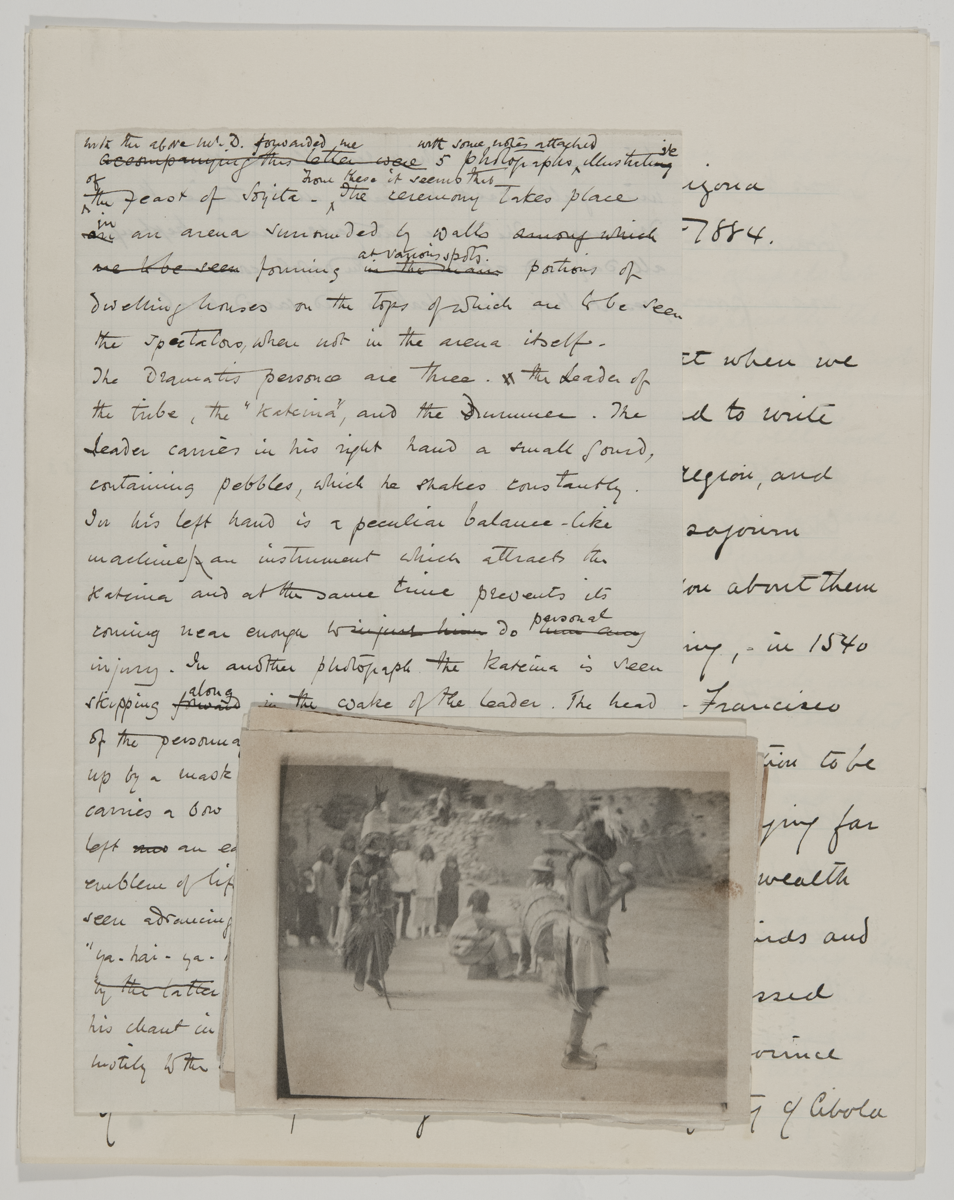 with the above Mr. D. forwarded me with some notes attached
accompanying this letter were 5 photographs, illustrative
of from these it seems that
the Feast of Soyita - The ceremony takes place
in
an arena surrounded by walls among which
at various spots.
we to be seen forming in the main portions of
dwelling houses on the tops of which are to be seen
the spectators, when not in the arena itself -
The Dramatis personæ are three. the Leader of
the tribe, the "Kateina", and the Drummer. The
Leader carries in his right hand a small gourd,
containing pebbles, which he shakes constantly.
In his left hand is a peculiar balance-like
machine, an instrument which attracts the
Kateina and at the same time prevents its
personal
coming near enough to injure him do him any
injury. In another photograph the Kateina is seen
along
skipping forward in the wake of the leader. The head
of the persona
up by a mask
carries a bow
left an ea
emblem of lif
seen advancing
"ya-hai-ya-
by the latter
his chant in
motily to the
izona
1884.
t when we
d to write
region, and
sojourn
ou about them
ing, - in 1540
Francisco
tion to be
ying far
wealth
ards and
ssed
ovince
ty of Cibola